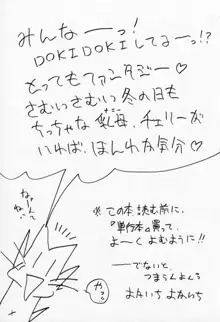 みんなーっ!
DOKIDOKIしてるーっ!?
とってもファンタジー♡
さむいさむい冬の日も
ちっちゃな乳母、チェリーが
いれば、ほんわか気分♡
※この本読む前に、
『単行本』買って、
よーくよむように!!
──でないと、
つまらんよんろ
よかいち よかいち
なーんて
やっ